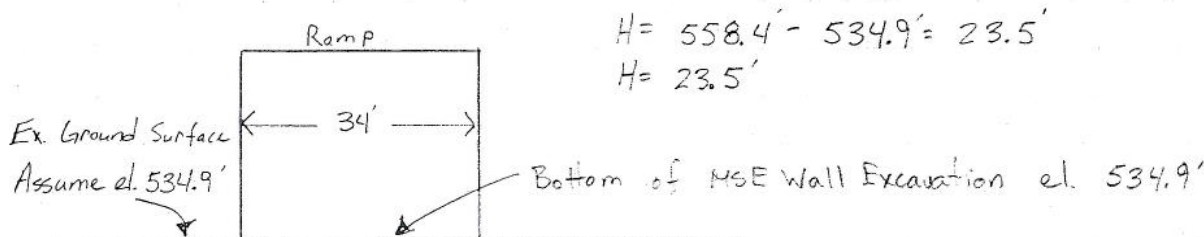 Ramp
H= 558.4' - 534.9' = 23.5'
H= 23.5'
34'
Ex. Ground Surface
Assume el. 534.9'
Bottom of MSE Wall Excavation el. 534.9'